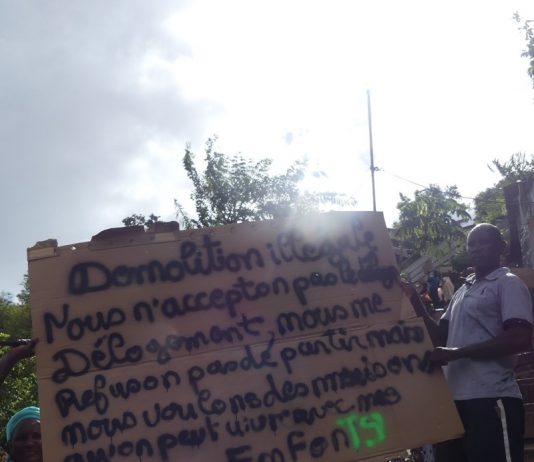 Demolition illegal.
Nous n'accepton pas le
Délogement, nous me
Refuson pas dé partir mais
nous voulons des maisons
qu'on peut vivre avec mes
EnfonTS